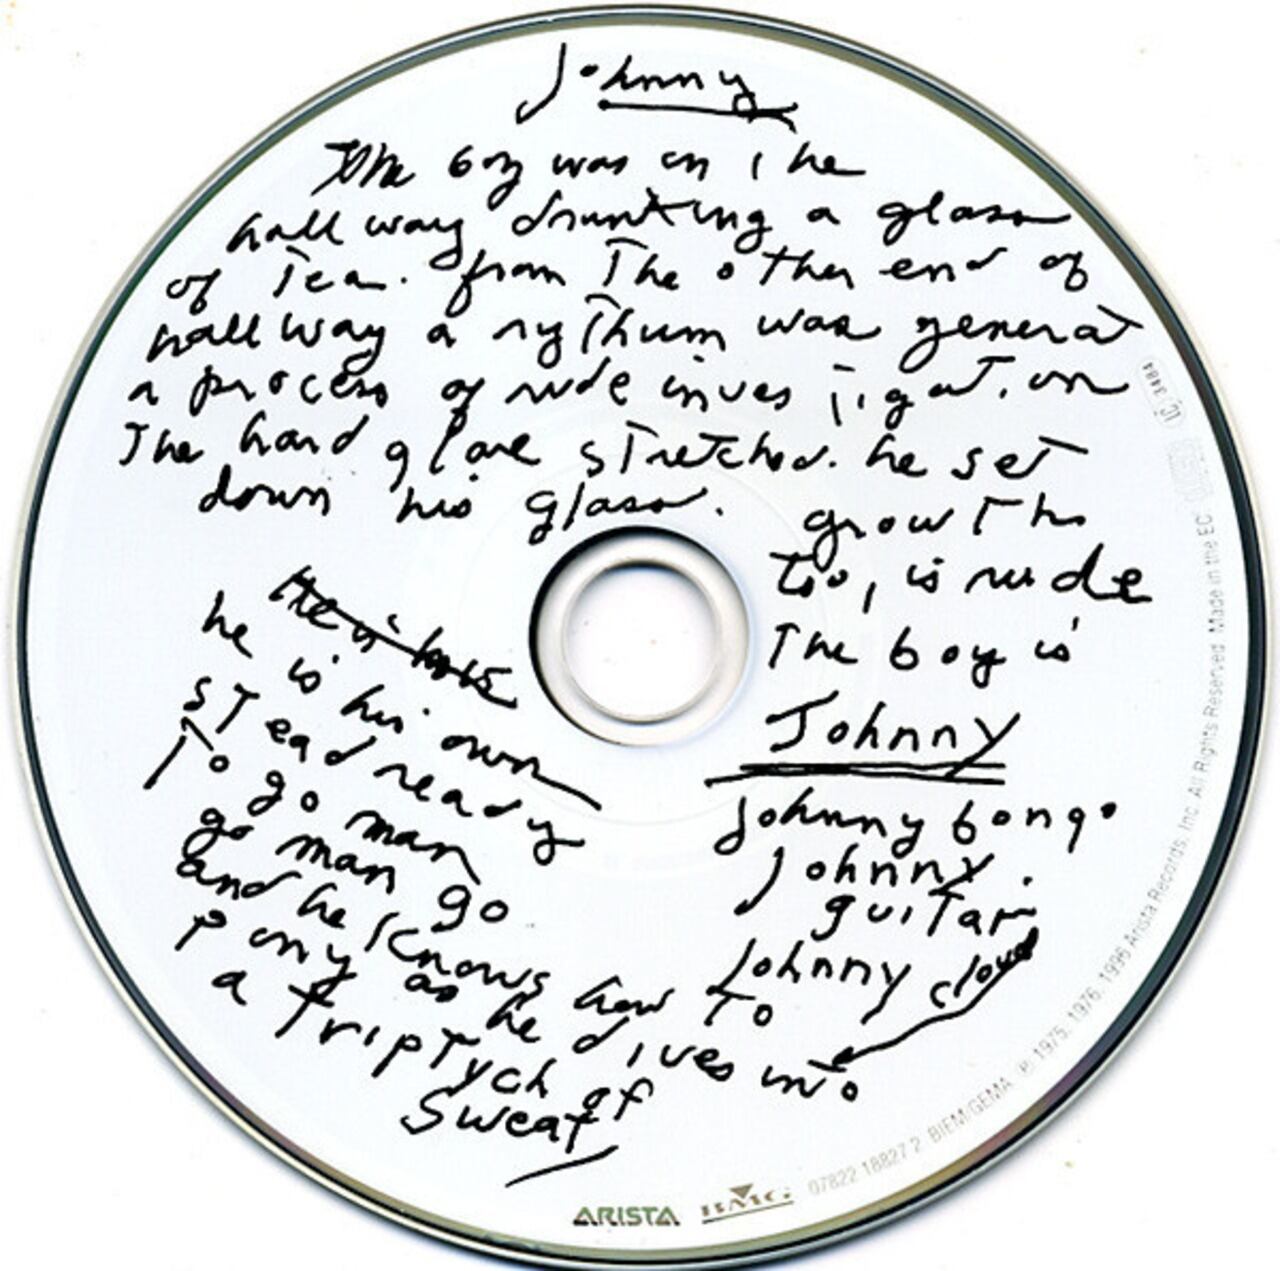 Johnny
The boy was in the
hallway drinking a glass
of Tea. from The other end of
hallway a rythum was generat
a process of nude investigation
The hard glare stretched. he set
down his glass. growth
too, is nude
The boy is
Johnny
Johnny bongo
Johnny
guitar
Johnny cloud
he is his own
stead ready
To go man
go man go
and he knows how To
pony as he dives into
a Triptych of
Sweat
ARISTA BMG 07822 18827 2 BIEM/GEMA ℗ 1975, 1976, 1996 Arista Records, Inc. All Rights Reserved. Made in the EC
LC 3484